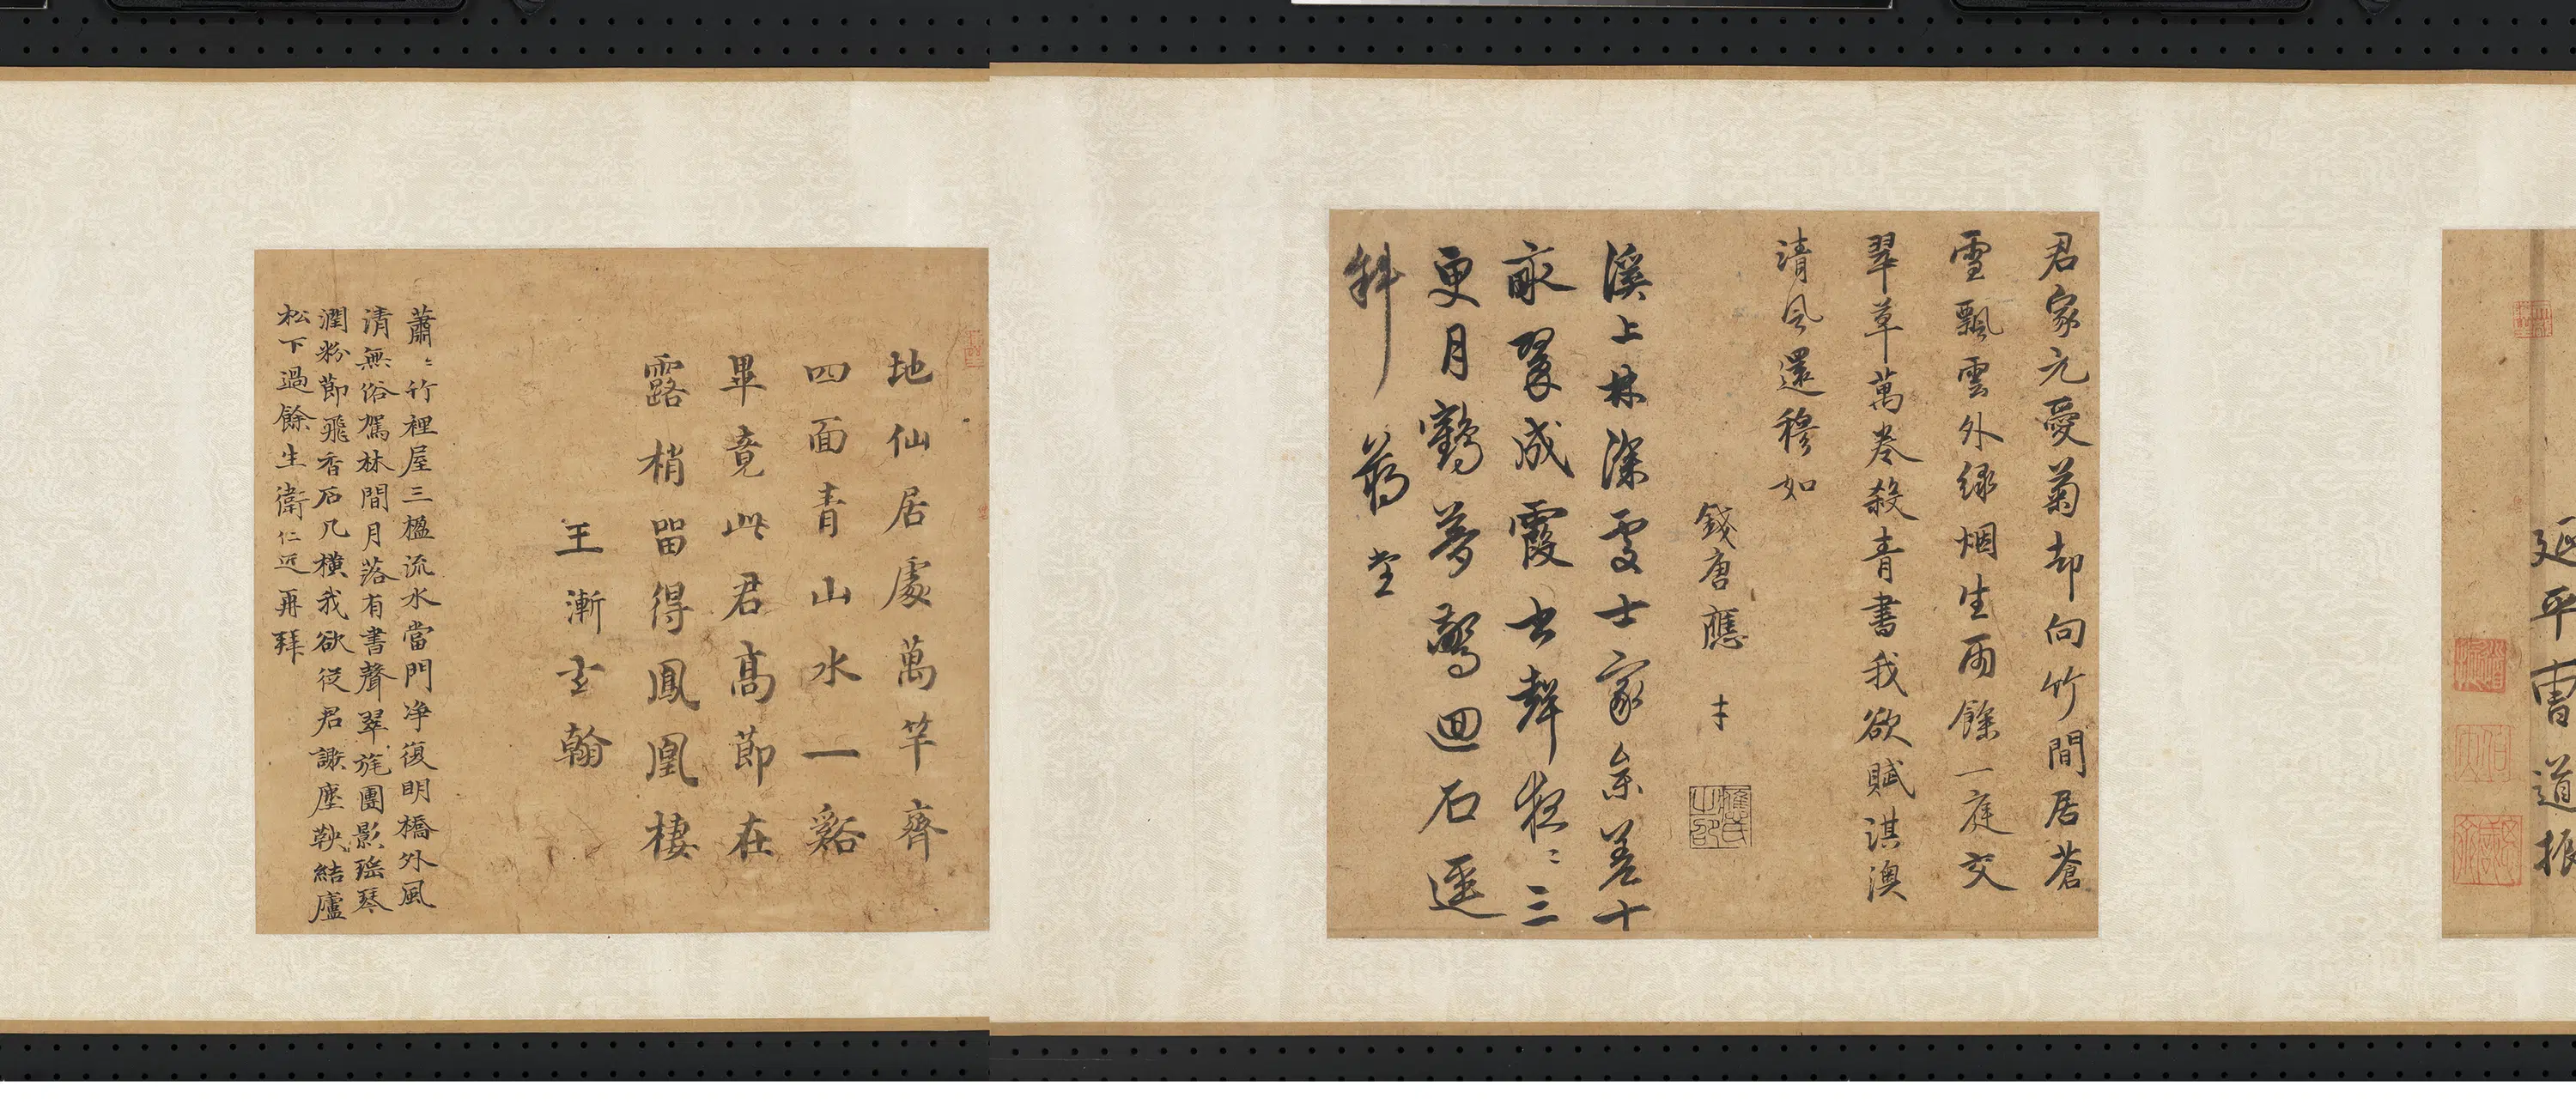 延平曹道振
君家元愛菊却向竹間居蒼
雪飄雲外緑烟生雨餘一庭交
翠草萬卷殺青書我欲賦淇澳
清風還穆如
錢唐應才
溪上林深處士家參差十
畝翠成霞書聲夜〻三
更月鶴夢驚回石逕
斜 蒋堂
地仙居處萬竿齊
四面青山水一谿
畢竟此君高節在
露梢留得鳳凰棲
王漸玄翰
蕭〻竹裡屋三楹流水當門净復明橋外風
清無俗駕林間月落有書聲翠旄團影瑶琴
潤粉節飛香石几横我欲從君謝塵鞅結廬
松下過餘生衛仁近再拜